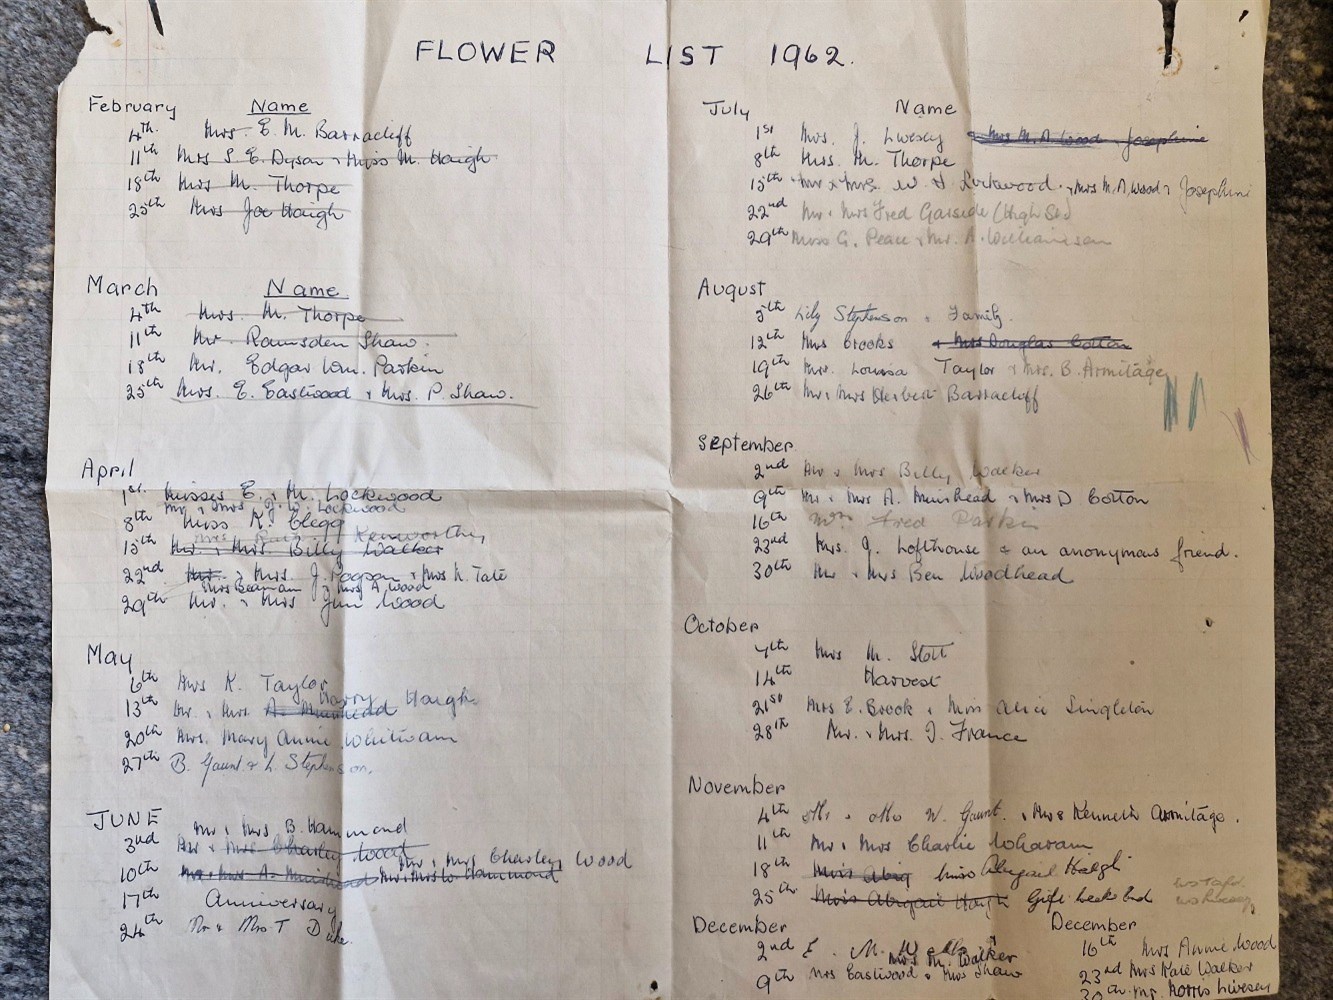 FLOWER LIST 1962.
February Name
4th. Mrs. E. M. Barracloff
11th Mrs S. E. Dyson & Miss M. Haigh
18th Mrs M. Thorpe
25th Mrs Joe Haigh
March Name
4th Mrs. M. Thorpe
11th Mr. Ramsden Shaw.
18th Mr. Edgar Wm. Parkin
25th Mrs. E. Eastwood & Mrs. P. Shaw.
April
1st. Misses E. & M. Lockwood
Mr & Mrs J. W. Lockwood
8th Miss K. Clegg
Kenworthy
15th Mr. & Mrs. Billy Walker
22nd Mr. & Mrs. J. Pogson & Mrs N. Tate
Mrs Beaman & Mrs A. Wood
29th Mr. & Mrs Jim Wood
May
6th Mrs K. Taylor
13th Mr. & Mrs A. Muirhead Harry Haigh
20th Mrs. Mary Annie Whitwam
27th B. Gaunt & L. Stephenson.
JUNE
Mr & Mrs B. Hammond
3rd Mr & Mrs Charley Wood
Mr & Mrs Charley Wood
10th Mr & Mrs A. Muirhead Mr & Mrs W. Hammond
17th Anniversary
24th Mr & Mrs T Dyke.
July Name
1st Mrs. J. Livesey & Mrs M. A. Wood & Josephine
8th Mrs. M. Thorpe
15th Mr & Mrs. W. H. Lockwood. & Mrs M. A. Wood & Josephine
22nd Mr & Mrs Fred Garside (High St)
29th Mrs G. Peace & Mr. A. Williamson
August
5th Lily Stephenson & Family.
12th Mrs Crooks & Mrs Douglas Cotton
19th Mrs. Louisa Taylor & Mrs. B. Armitage
26th Mr & Mrs Herbert Barracloff
September
2nd Mr & Mrs Billy Walker
9th Mr & Mrs A. Muirhead & Mrs D Cotton
16th Mrs Fred Parkin
23rd Mrs. J. Lofthouse & an anonymous friend.
30th Mr & Mrs Ben Woodhead
October
7th Mrs M. Stott
14th Harvest
21st Mrs E. Brook & Mrs Alice Singleton
28th Mr. & Mrs. J. France
November
4th Mr & Mrs W. Gaunt. & Mrs Kenneth Armitage.
11th Mr & Mrs Charlie Wharam
18th Miss Abig Miss Abigail Haigh
25th Miss Abigail Haigh Gift Week End
December
2nd E. M.
Mrs M. Walker
9th Mrs Eastwood & Mrs Shaw
December
16th Mrs Annie Wood
23rd Mrs Kate Walker
30th Mr. Norris Livesey